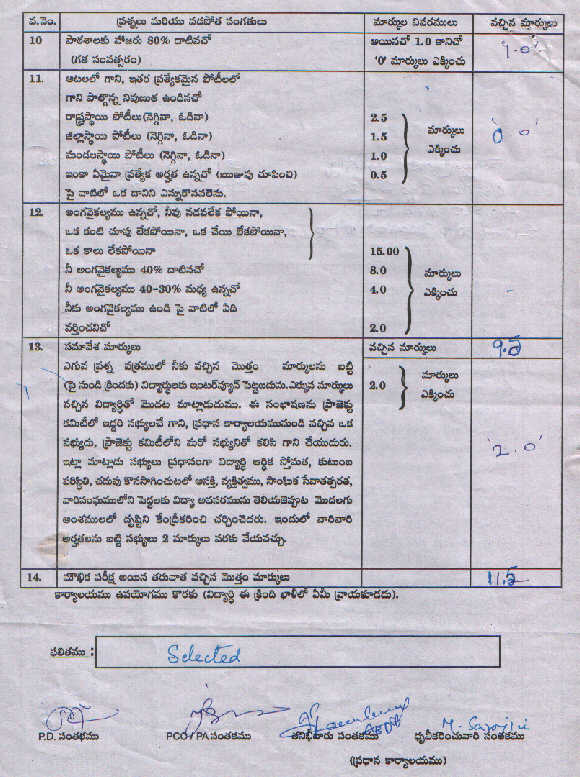 వ.నెం. ప్రశ్నలు మరియు వడపోత సంగతులు మార్కుల వివరములు వచ్చిన మార్కులు
10 పాఠశాలకు హాజరు 80% దాటినచో అయినచో 1.0 కానిచో '1.0'
(గత సంవత్సరం) '0' మార్కులు ఎక్కించు
11. ఆటలలో గాని, ఇతర ప్రత్యేకమైన పోటీలలో
గాని పాల్గొన్న నిపుణుత ఉండినచో
రాష్ట్రస్థాయి పోటీలు (నెగ్గినా, ఓడినా) 2.5 మార్కులు
జిల్లాస్థాయి పోటీలు (నెగ్గినా, ఓడినా) 1.5 ఎక్కించు
మండలస్థాయి పోటీలు (నెగ్గినా, ఓడినా) 1.0
ఇంకా ఏమైనా ప్రత్యేక అర్హత ఉన్నచో (ఋజువు చూపించి) 0.5
పై వాటిలో ఒక దానిని ఎన్నుకొనవలెను.
12. అంగవైకల్యము ఉన్నచో, నీవు నడవలేక పోయినా,
ఒక కంటి చూపు లేకపోయినా, ఒక చేయి లేకపోయినా,
ఒక కాలు లేకపోయినా 15.00
నీ అంగవైకల్యము 40% దాటినచో 8.0 మార్కులు
నీ అంగవైకల్యము 40-30% మధ్య ఉన్నచో 4.0 ఎక్కించు
నీకు అంగవైకల్యము ఉండి పై వాటిలో ఏది
వర్తించనిచో 2.0
13. సమావేశ మార్కులు వచ్చిన మార్కులు 9.5
ఎగువ ప్రశ్న పత్రములో నీకు వచ్చిన మొత్తం మార్కులను బట్టి
(పై నుండి క్రిందకు) విద్యార్థులకు ఇంటర్వ్యూస్ పెట్టబడును. ఎక్కువ మార్కులు
వచ్చిన విద్యార్థితో మొదట మాట్లాడుదుము. ఈ సంభాషణను ప్రాజెక్టు
కమిటీలో ఇద్దరి సభ్యులచే గాని, ప్రధాన కార్యాలయమునుండి వచ్చిన ఒక
సభ్యుడు, ప్రాజెక్టు కమిటీలోని మరో సభ్యునితో కలిసి గాని చేయుదురు.
ఇట్లా మాట్లాడు సభ్యులు ప్రధానంగా విద్యార్థి ఆర్థిక స్తోమత, కుటుంబ
పరిస్థితి, చదువు కొనసాగించుటలో ఆసక్తి, వ్యక్తిత్వము, సాంఘిక సేవాతత్పరత,
వారిసంఘములోని పెద్దలకు విద్యా అవసరమును తెలియజెప్పుట మొదలగు
అంశములలో దృష్టిని కేంద్రీకరించి చర్చించెదరు. ఇందులో వారివారి
అర్హతలను బట్టి సభ్యులు 2 మార్కులు వరకు వేయవచ్చు.
2.0 మార్కులు
ఎక్కించు
'2.0'
14. మౌఖిక పరీక్ష అయిన తరువాత వచ్చిన మొత్తం మార్కులు 11.5
కార్యాలయము ఉపయోగము కొరకు (విద్యార్థి ఈ క్రింది ఖాళీలో ఏమీ వ్రాయకూడదు).
ఫలితము : Selected
M. Sarojini
P.D. సంతకము PCO / PA సంతకము తనిఖీదారు సంతకము ధృవీకరించువారి సంతకము
(ప్రధాన కార్యాలయము)